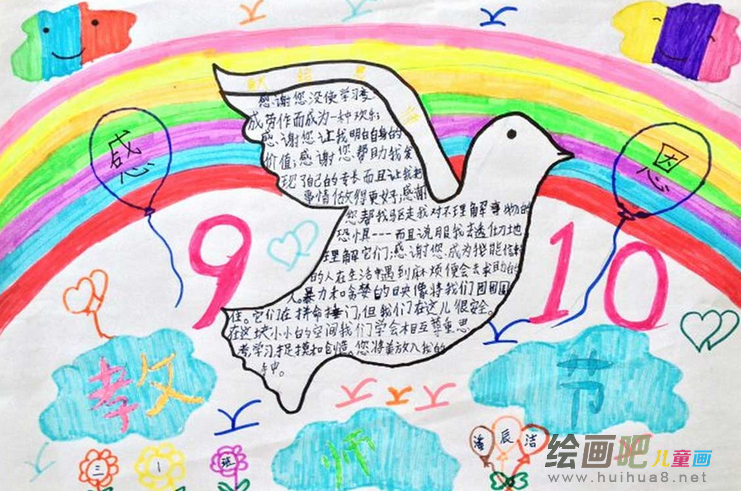 献给
感
恩
感谢您没使学习变
成劳作而成为一种欢乐
感谢您让我明白自身的
价值;感谢您帮助我发
现了自己的专长而且让我把
事情做得更好;感谢
您帮我驱走我对不理解事物的
恐惧---而且说服我透彻地
理解它们;感谢您成为我能信赖
的人在生活中遇到麻烦便会去求助的
无暴力和贪婪的映像将我们团团围
住。它们在拼命捶门,但我们在这儿很安全。
在这块小小的空间我们学会相互尊重,思
考,学习捉摸和创造。您将美放入我的
手中。
9 10
教
师
节
三
1
班
潘
辰
洁
绘画吧儿童画
www.huihua8.net